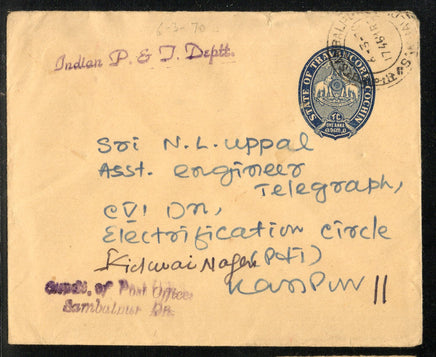 6-3-70
Indian P. & T. Deptt.
STATE OF TRAVANCORE-COCHIN
TC
ONE ANNA
Sri N. L. Uppal
Asst. engineer
Telegraph,
Dn,
Electrification circle
Kidwai Nagar (P&T)
Kanpur 11
Supdt. of Post Offices
Sambalpur Dn.